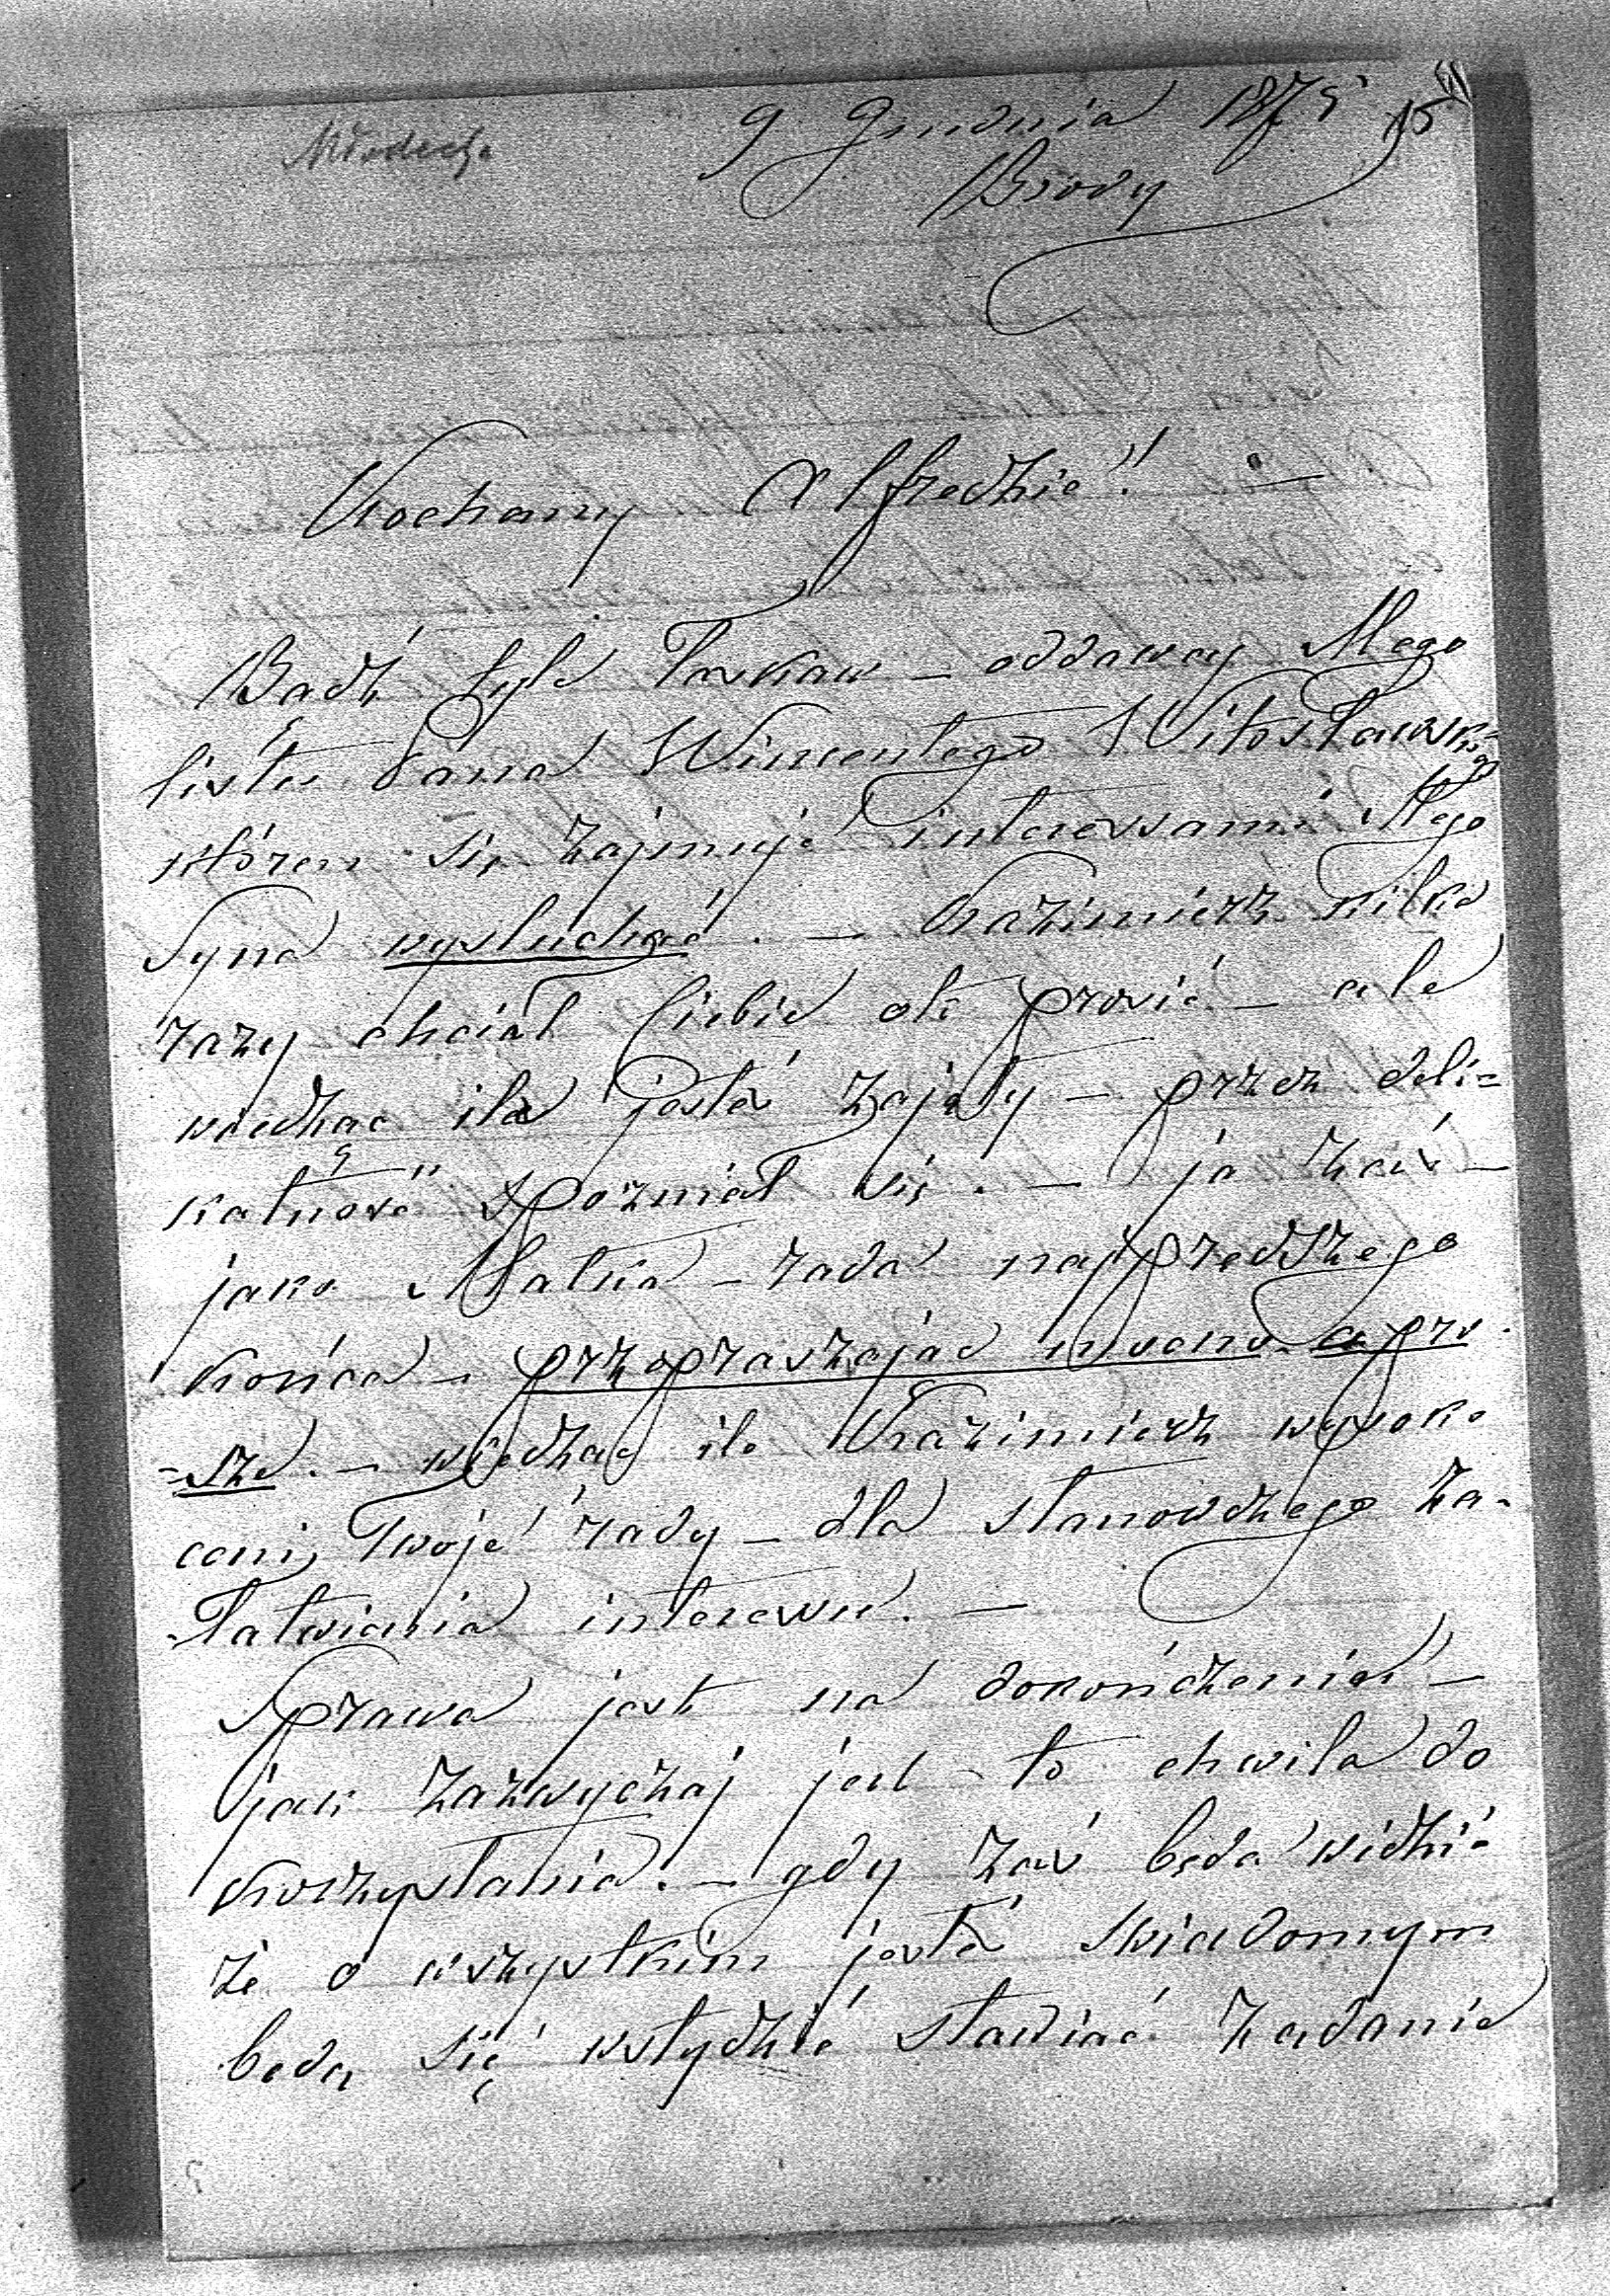 9 Grudnia 1875
15
Brody
Kochany Alfredzie! —
Badź tyle łaskaw — oddawcy Mego
listu Pana Wincentego Witosławskiego
któren się zajmuje interessami Mego
Syna wysłuchać. — Kazimierz kilka
razy chciał Ciebie oto prosić — ale
wiedząc ile jesteś zajęty — przez deli=
katność spózniał się. — ja zaś —
jako Matka — rada najprędszego
końca — przepraszając mocno a pro
=szę. — wiedząc ile Kazimierz wysoko
ceni Twoje rady — dla stanowczego za-
-łatwienia interessu. —
Sprawa jest na dokończeniu —
jak zazwyczaj jest to chwila do
korzystania. — gdy zaś będą widzić
że o wszystkim jesteś swiadomym
będą się wstydzić stawiać ządania